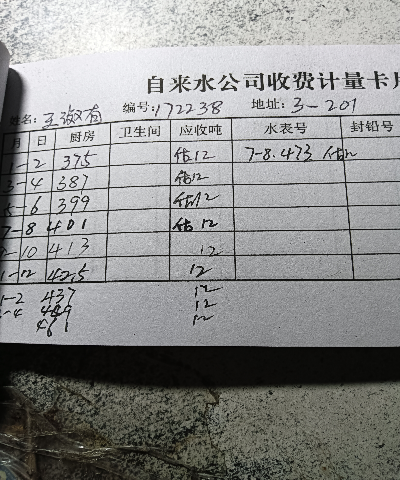 自来水公司收费计量卡片
姓名: 王淑有 编号: 172238 地址: 3-201
月 日 厨房 卫生间 应收吨 水表号 封铅号
1-2 375 估12 7-8.473
3-4 387 估12
5-6 399 估12
7-8 401 估12
10 413 12
1-12 425 12
1-2 437 12
-4 449 12
461 12